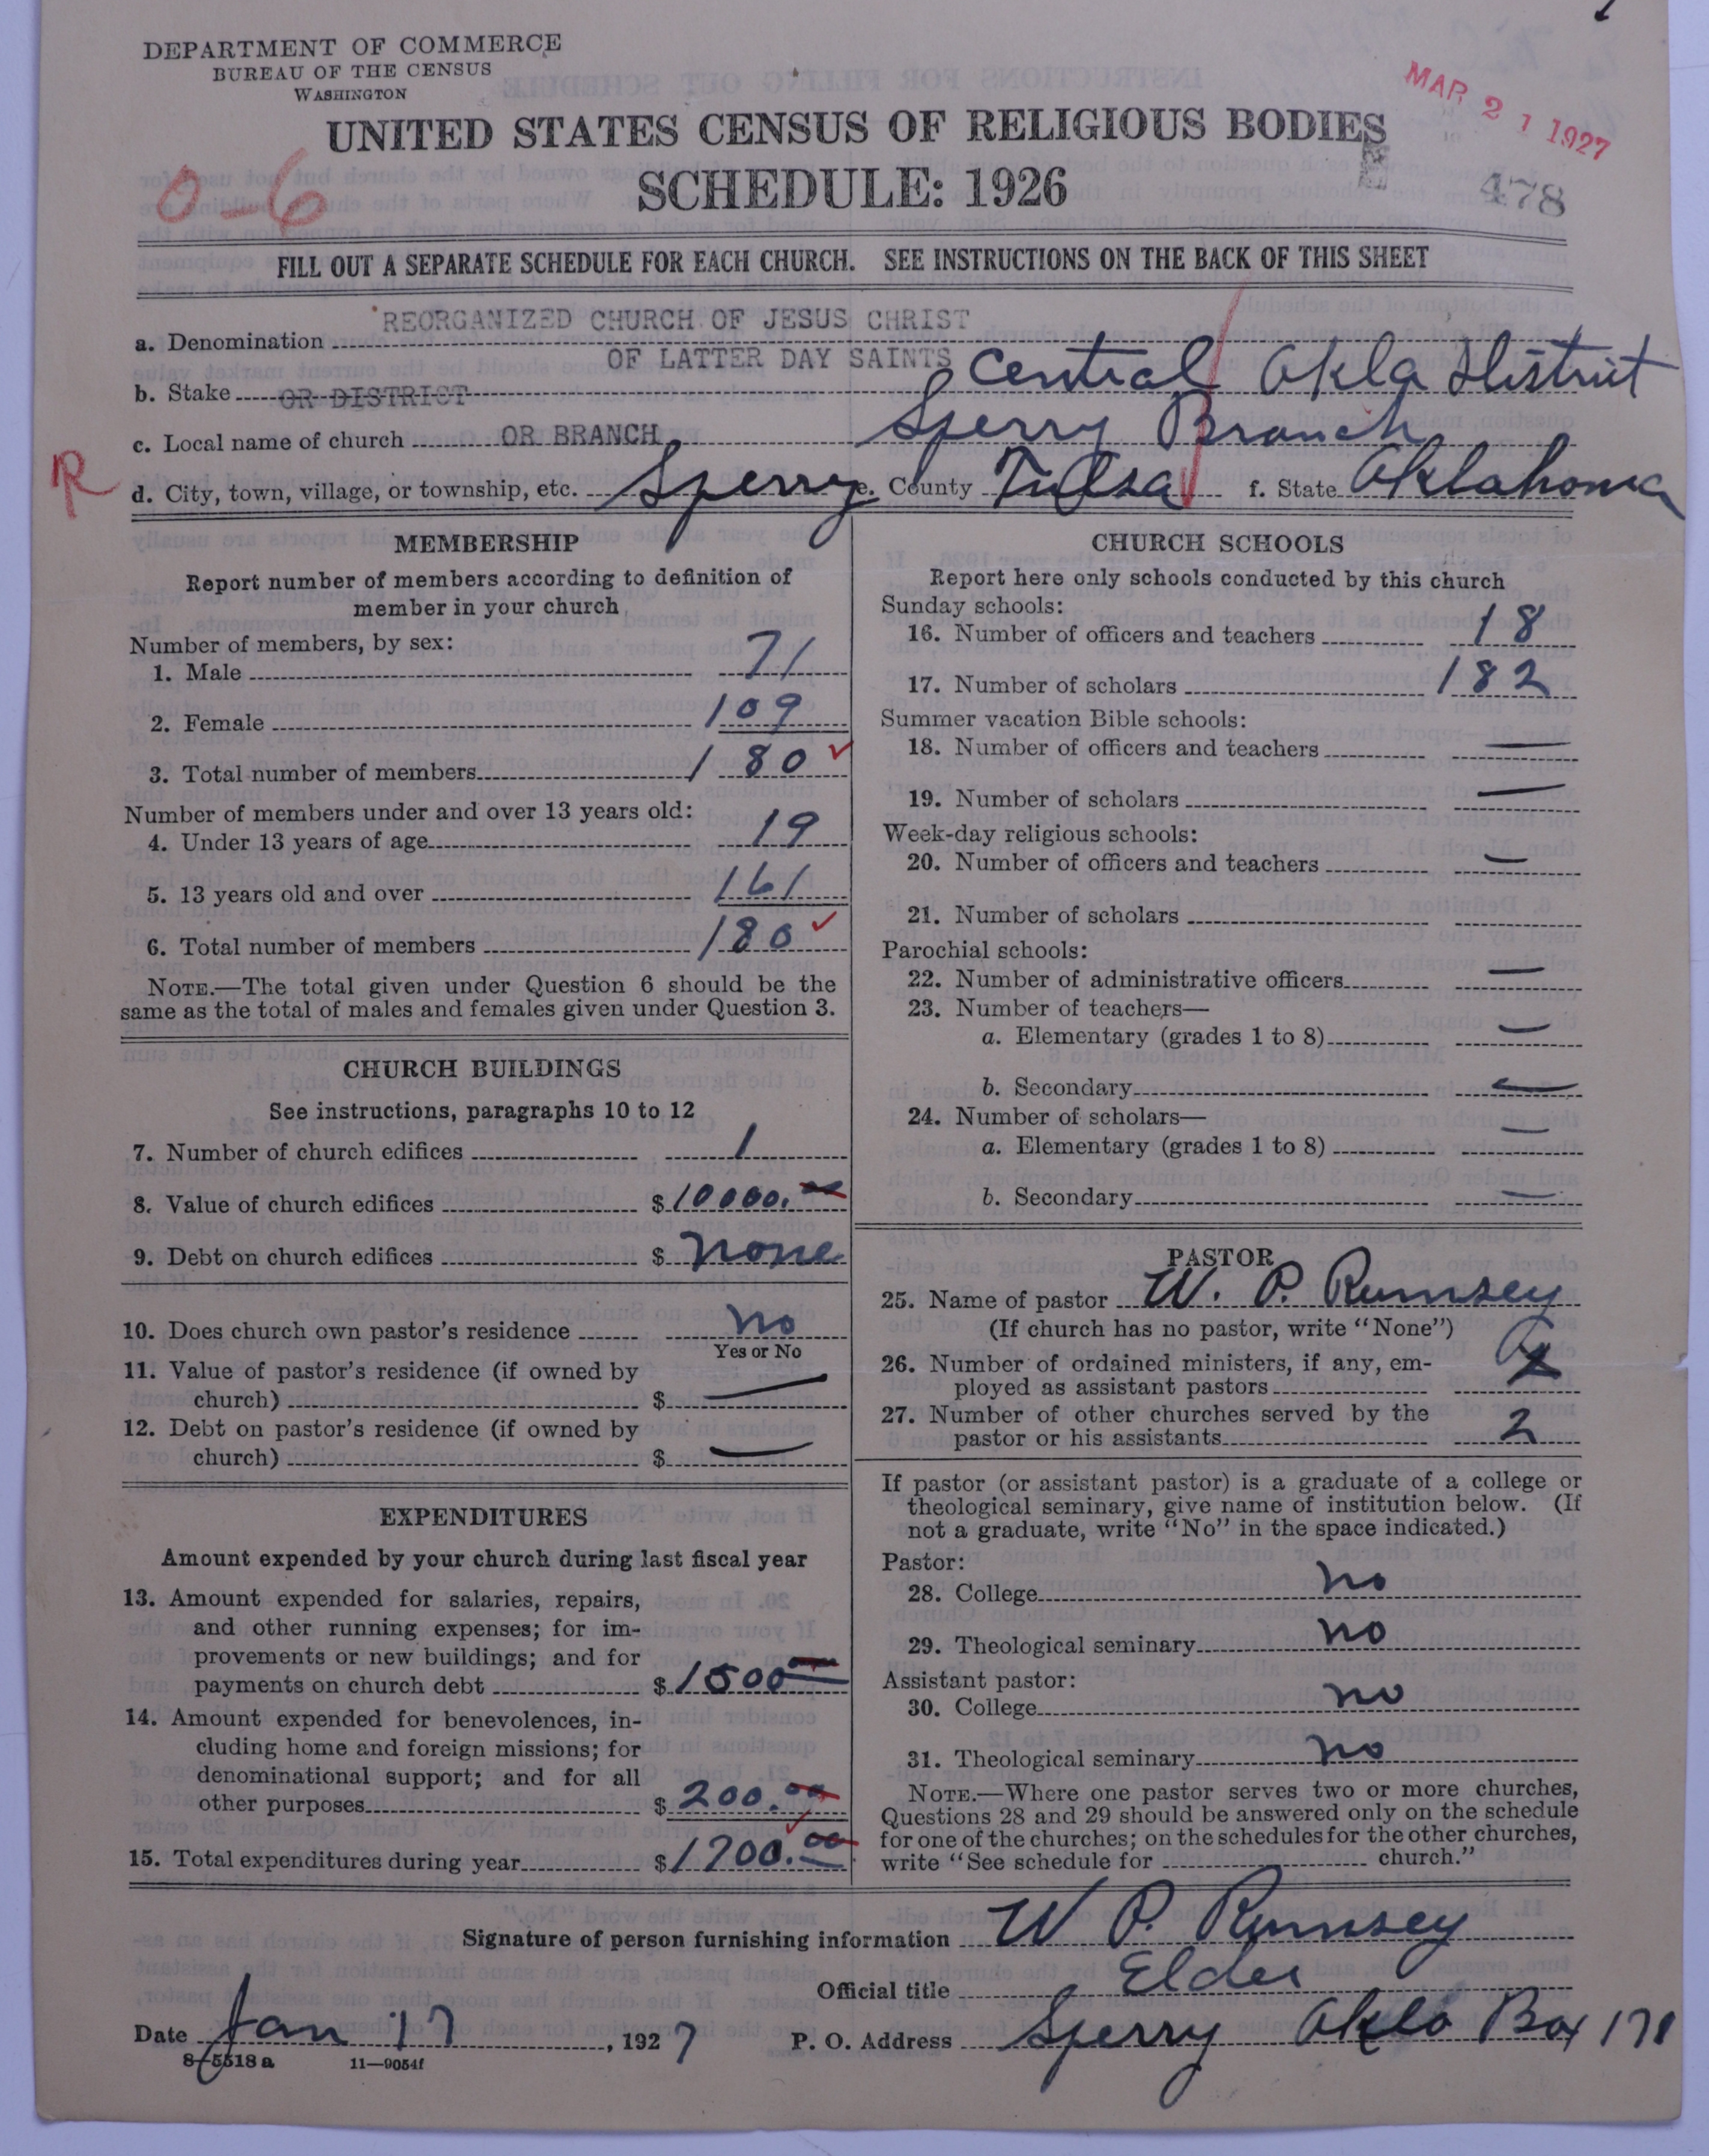 DEPARTMENT OF COMMERCE
BUREAU OF THE CENSUS
WASHINGTON
MAR 21 1927
UNITED STATES CENSUS OF RELIGIOUS BODIES
SCHEDULE: 1926
O-6
478
FILL OUT A SEPARATE SCHEDULE FOR EACH CHURCH. SEE INSTRUCTIONS ON THE BACK OF THIS SHEET
a. Denomination REORGANIZED CHURCH OF JESUS CHRIST
OF LATTER DAY SAINTS
b. Stake OR DISTRICT Central Okla District
c. Local name of church OR BRANCH Sperry Branch
R
d. City, town, village, or township, etc. Sperry e. County Tulsa f. State Oklahoma
MEMBERSHIP
Report number of members according to definition of
member in your church
Number of members, by sex:
1. Male 71
2. Female 109
3. Total number of members 180
Number of members under and over 13 years old:
4. Under 13 years of age 19
5. 13 years old and over 161
6. Total number of members 180
NOTE.—The total given under Question 6 should be the
same as the total of males and females given under Question 3.
CHURCH BUILDINGS
See instructions, paragraphs 10 to 12
7. Number of church edifices 1
8. Value of church edifices $ 10000.00
9. Debt on church edifices $ none
10. Does church own pastor's residence no
Yes or No
11. Value of pastor's residence (if owned by
church) $ —
12. Debt on pastor's residence (if owned by
church) $ —
EXPENDITURES
Amount expended by your church during last fiscal year
13. Amount expended for salaries, repairs,
and other running expenses; for im-
provements or new buildings; and for
payments on church debt $ 1500 00
14. Amount expended for benevolences, in-
cluding home and foreign missions; for
denominational support; and for all
other purposes $ 200.00
15. Total expenditures during year $ 1700.00
CHURCH SCHOOLS
Report here only schools conducted by this church
Sunday schools:
16. Number of officers and teachers 18
17. Number of scholars 182
Summer vacation Bible schools:
18. Number of officers and teachers —
19. Number of scholars —
Week-day religious schools:
20. Number of officers and teachers —
21. Number of scholars
Parochial schools:
22. Number of administrative officers —
23. Number of teachers—
a. Elementary (grades 1 to 8) —
b. Secondary —
24. Number of scholars—
a. Elementary (grades 1 to 8) —
b. Secondary —
PASTOR
25. Name of pastor W. P. Rumsey
(If church has no pastor, write "None")
26. Number of ordained ministers, if any, em-
ployed as assistant pastors
27. Number of other churches served by the
pastor or his assistants 2
If pastor (or assistant pastor) is a graduate of a college or
theological seminary, give name of institution below. (If
not a graduate, write "No" in the space indicated.)
Pastor:
28. College no
29. Theological seminary no
Assistant pastor:
30. College no
31. Theological seminary no
NOTE.—Where one pastor serves two or more churches,
Questions 28 and 29 should be answered only on the schedule
for one of the churches; on the schedules for the other churches,
write "See schedule for church."
Signature of person furnishing information W P. Rumsey
Official title Elder
Date Jan 17, 1927 P. O. Address Sperry Okla Box 171
8-5518 a 11-9054f